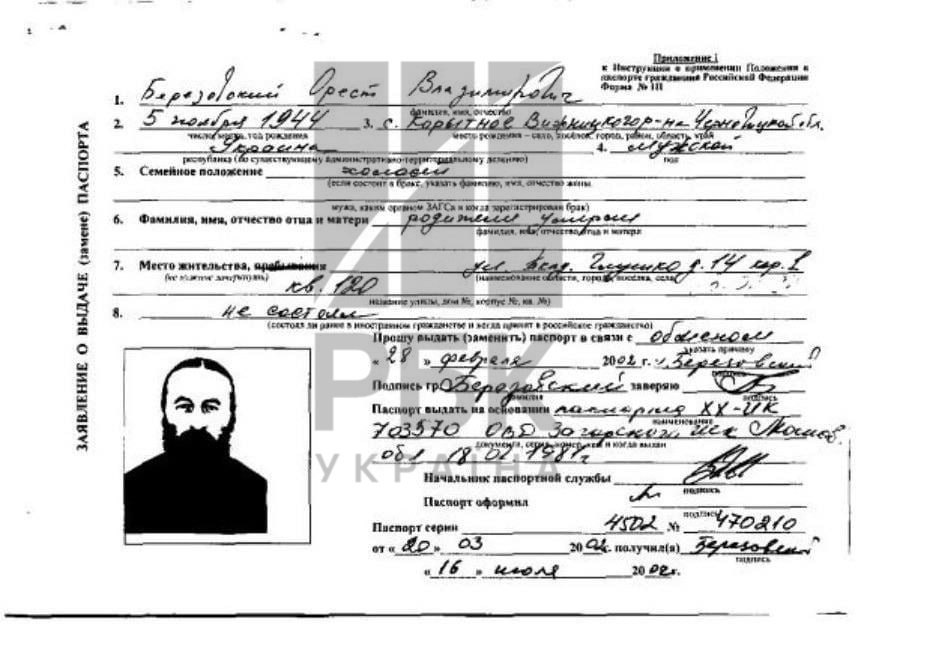 Приложение 1
к Инструкции о применении Положения о
паспорте гражданина Российской Федерации
Форма № 1П
ЗАЯВЛЕНИЕ О ВЫДАЧЕ (замене) ПАСПОРТА
1. Березовский Орест Владимирович
фамилия, имя, отчество
2. 5 ноября 1944 3. с. Корытное Вижницкого р-на Черновицкой обл.
число, месяц, год рождения место рождения – село, посёлок, город, район, область, край
Украина 4. Мужской
республика (по существующему административно-территориальному делению) пол
5. Семейное положение холост
(если состоит в браке, указать фамилию, имя, отчество жены
мужа, каким органом ЗАГСа и когда зарегистрирован брак)
6. Фамилия, имя, отчество отца и матери родители умерли
фамилия, имя, отчество отца и матери
7. Место жительства, пребывания ул. Глушко д. 14 кор. 1
(не нужное зачеркнуть) (наименование области, города, поселка, села)
кв. 120
название улицы, дом №, корпус №, кв. №)
8. не состоял
(состоял ли ранее в иностранном гражданстве и когда принят в российское гражданство)
Прошу выдать (заменить) паспорт в связи с обменом
указать причину
« 28 » февраля 2002 г. Березовский
подпись
Подпись гр. Березовский заверяю
фамилия подпись
Паспорт выдать на основании паспорта XX-ИК
наименование
703570 ОВД Загорского Моск.
документа, серия, номер, кем и когда выдан
обл 18.02 1981г
Начальник паспортной службы
подпись
Паспорт оформил
подпись
Паспорт серии 4502 № 470210
от « 20 » 03 2002г. получил(а) Березовский
подпись
« 16 » июля 2002г.
РБК
УКРАЇНА